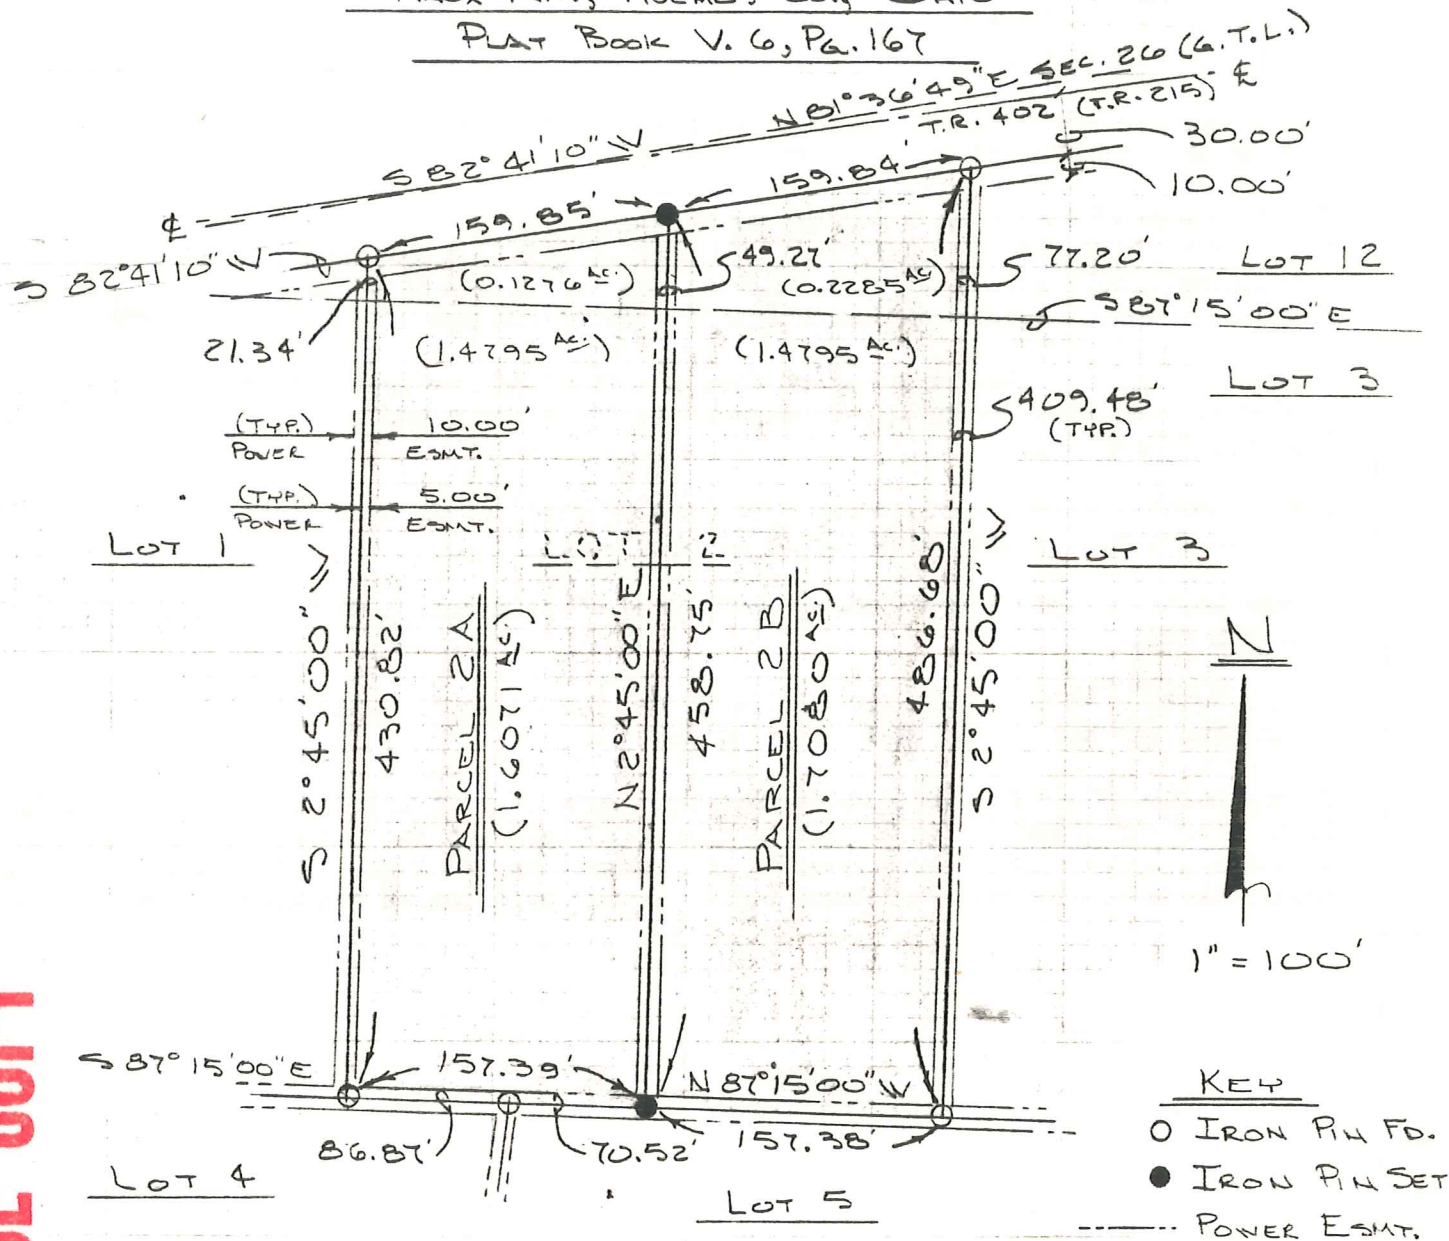 PLAT BOOK V. 6, PG. 167
N 81°36'49" E SEC. 26 (G.T.L.)
T.R. 402 (T.R. 215) ℄
S 82°41'10" W
℄
30.00'
10.00'
159.84'
159.85'
S 82°41'10" W
49.27'
77.20'
LOT 12
(0.1276 AC.)
(0.2285 AC.)
S 87°15'00" E
21.34'
(1.4795 AC.)
(1.4795 AC.)
LOT 3
409.48'
(TYP.)
(TYP.) 10.00'
POWER ESMT.
(TYP.) 5.00'
POWER ESMT.
LOT 1
LOT 2
LOT 3
S 2°45'00" W
430.82'
PARCEL 2A
(1.6071 AC.)
N 2°45'00" E
458.75'
PARCEL 2B
(1.7080 AC.)
486.68'
S 2°45'00" W
N
1" = 100'
S 87°15'00" E
157.39'
N 87°15'00" W
86.87'
70.52'
157.38'
LOT 4
LOT 5
KEY
○ IRON PIN FD.
● IRON PIN SET
POWER ESMT.